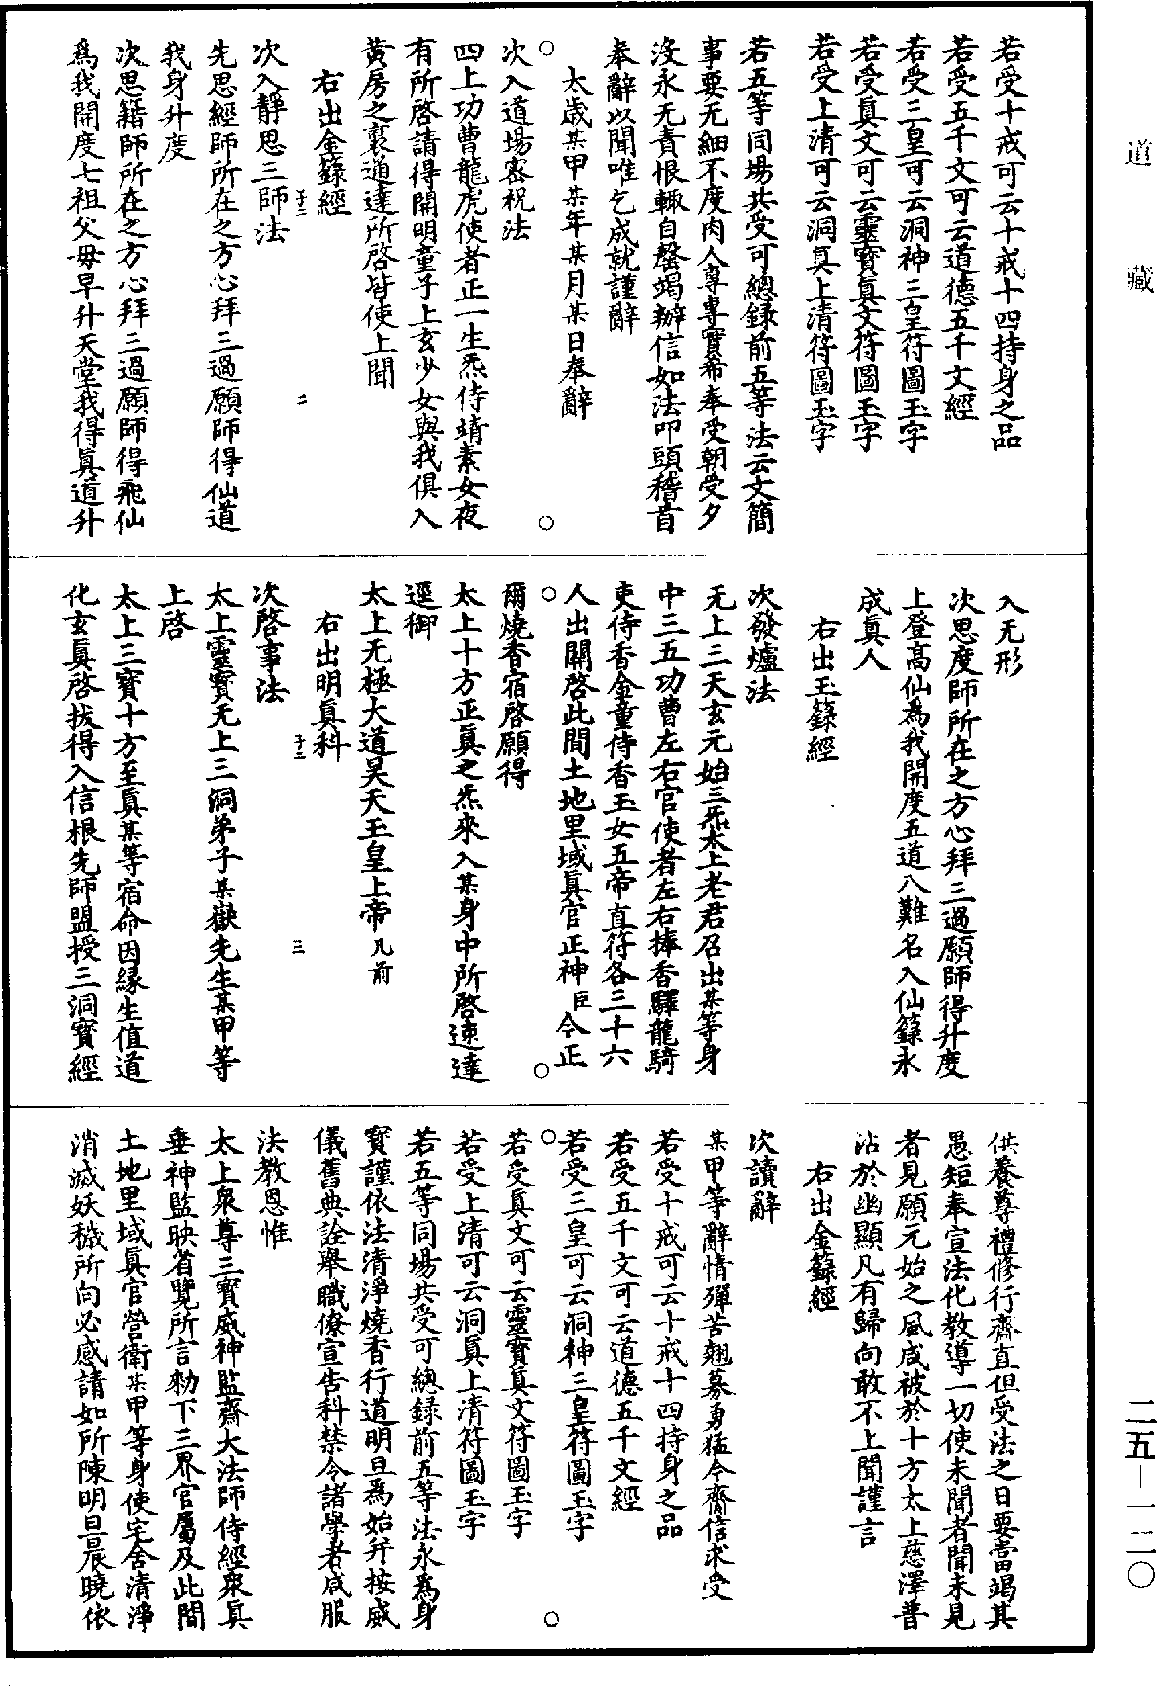 道藏
若受十戒可云十戒十四持身之品
若受五千文可云道德五千文經
若受三皇可云洞神三皇符圖玉字
若受真文可云靈寶真文符圖玉字
若受上清可云洞真上清符圖玉字
若五等同場共受可總録前五等法云文簡
事要无細不度肉人專專實希奉受朝受夕
没永无責恨輙自罄竭辦信如法叩頭稽首
奉辭以聞唯乞成就謹辭
太歲某甲某年某月某日奉辭
次入道場密祝法
四上功曹龍虎使者正一生炁侍靖素女夜
有所啓請得開明童子上玄少女與我俱入
黄房之裏通達所啓皆使上聞
右出金籙經
二
次入靜思三師法
先思經師所在之方心拜三過願師得仙道
我身升度
次思籍師所在之方心拜三過願師得飛仙
爲我開度七祖父母早升天堂我得真道升
入无形
次思度師所在之方心拜三過願師得升度
上登高仙爲我開度五道八難名入仙籙永
成真人
右出玉籙經
次發爐法
无上三天玄元始三炁太上老君召出某等身
中三五功曹左右官使者左右捧香驛龍騎
吏侍香金童侍香玉女五帝直符各三十六
人出關啓此間土地里域真官正神臣今正
爾燒香宿啓願得
太上十方正真之炁來入某身中所啓速達
逕御
太上无極大道昊天玉皇上帝几前
右出明真科
三
次啓事法
太上靈寶无上三洞弟子某嶽先生某甲等
上啓
太上三寶十方至真某等宿命因緣生值道
化玄真啓拔得入信根先師盟授三洞寶經
供養尊禮修行齋直但受法之日要當竭其
愚短奉宣法化教導一切使未聞者聞未見
者見願元始之風咸被於十方太上慈澤普
沾於幽顯凡有歸向敢不上聞謹言
右出金籙經
次讀辭
某甲等辭情殫苦翹慕勇猛今齎信求受
若受十戒可云十戒十四持身之品
若受五千文可云道德五千文經
若受三皇可云洞神三皇符圖玉字
若受真文可云靈寶真文符圖玉字
若受上清可云洞真上清符圖玉字
若五等同場共受可總録前五等法永爲身
寶謹依法清淨燒香行道明旦爲始并按威
儀舊典詮舉職僚宣告科禁令諸學者咸服
法教恩惟
太上衆尊三寶威神監齋大法師侍經衆真
垂神監映省覽所言勑下三界官屬及此間
土地里域真官營衛某甲等身使宅舍清淨
消滅妖穢所向必感請如所陳明旦晨曉依
二五—一二〇